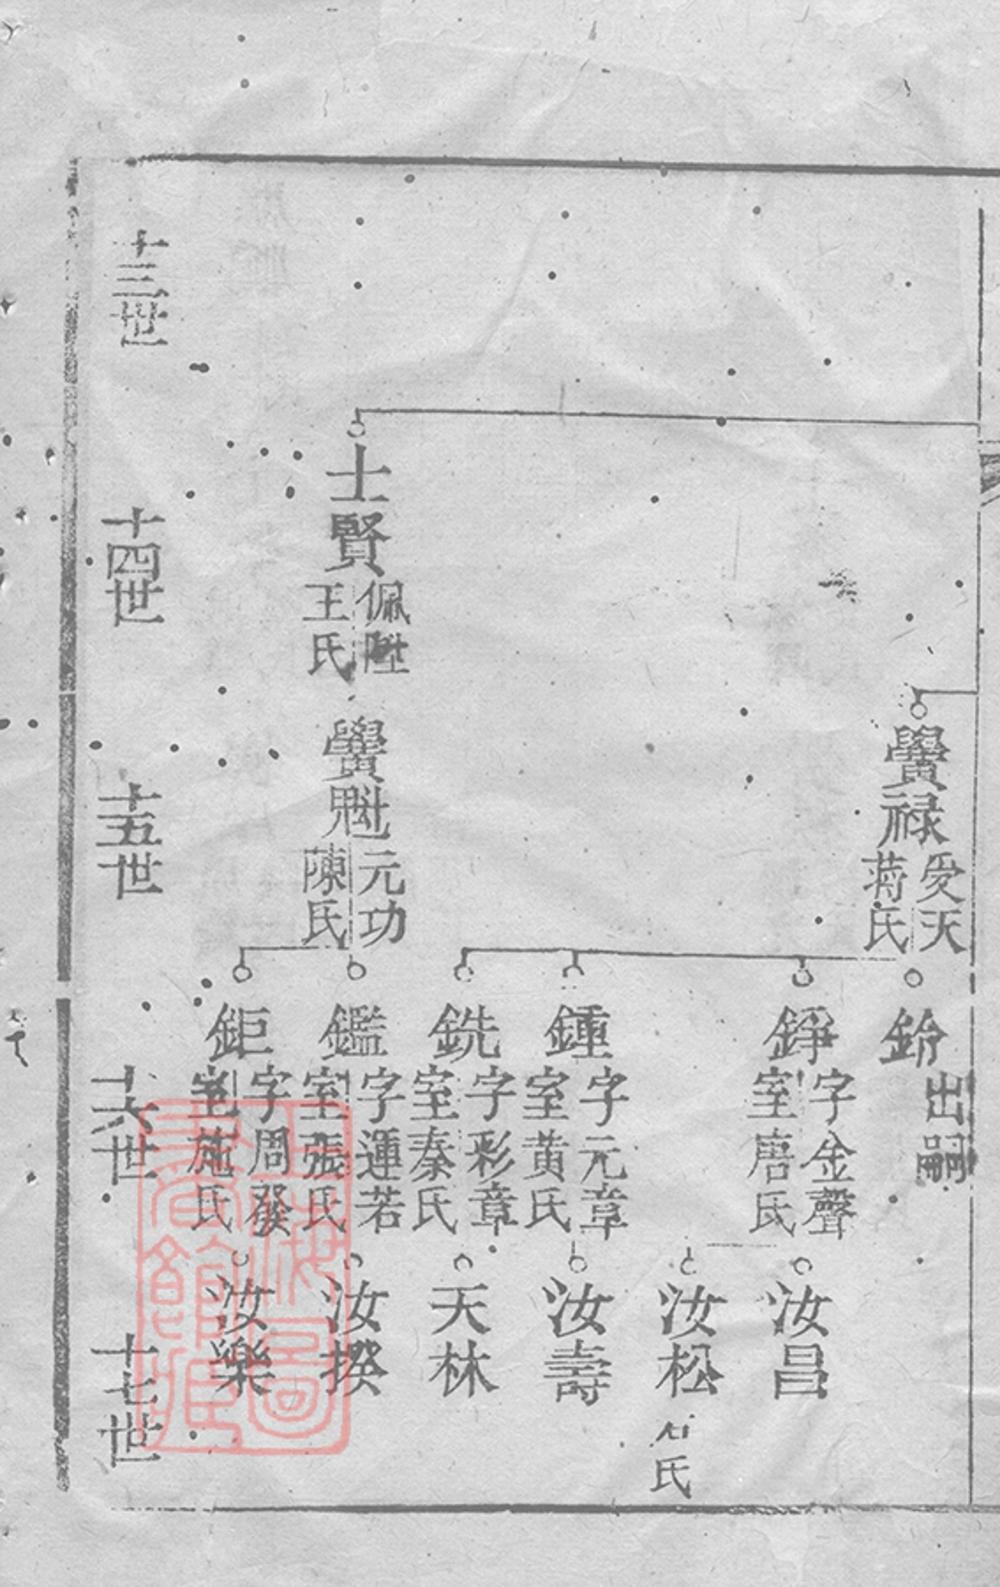 黌禄
爰天
蒋氏
鈴
出嗣
錚
字金聲
室唐氏
汝昌
汝松
石氏
鍾
字元章
室黄氏
汝壽
銑
字彩章
室秦氏
天林
士賢
佩陞
王氏
黌魁
元功
陳氏
鑑
字運若
室張氏
汝揆
鉅
字周發
室施氏
汝樂
十三世
十四世
十五世
十六世
十七世
上海圖書館藏